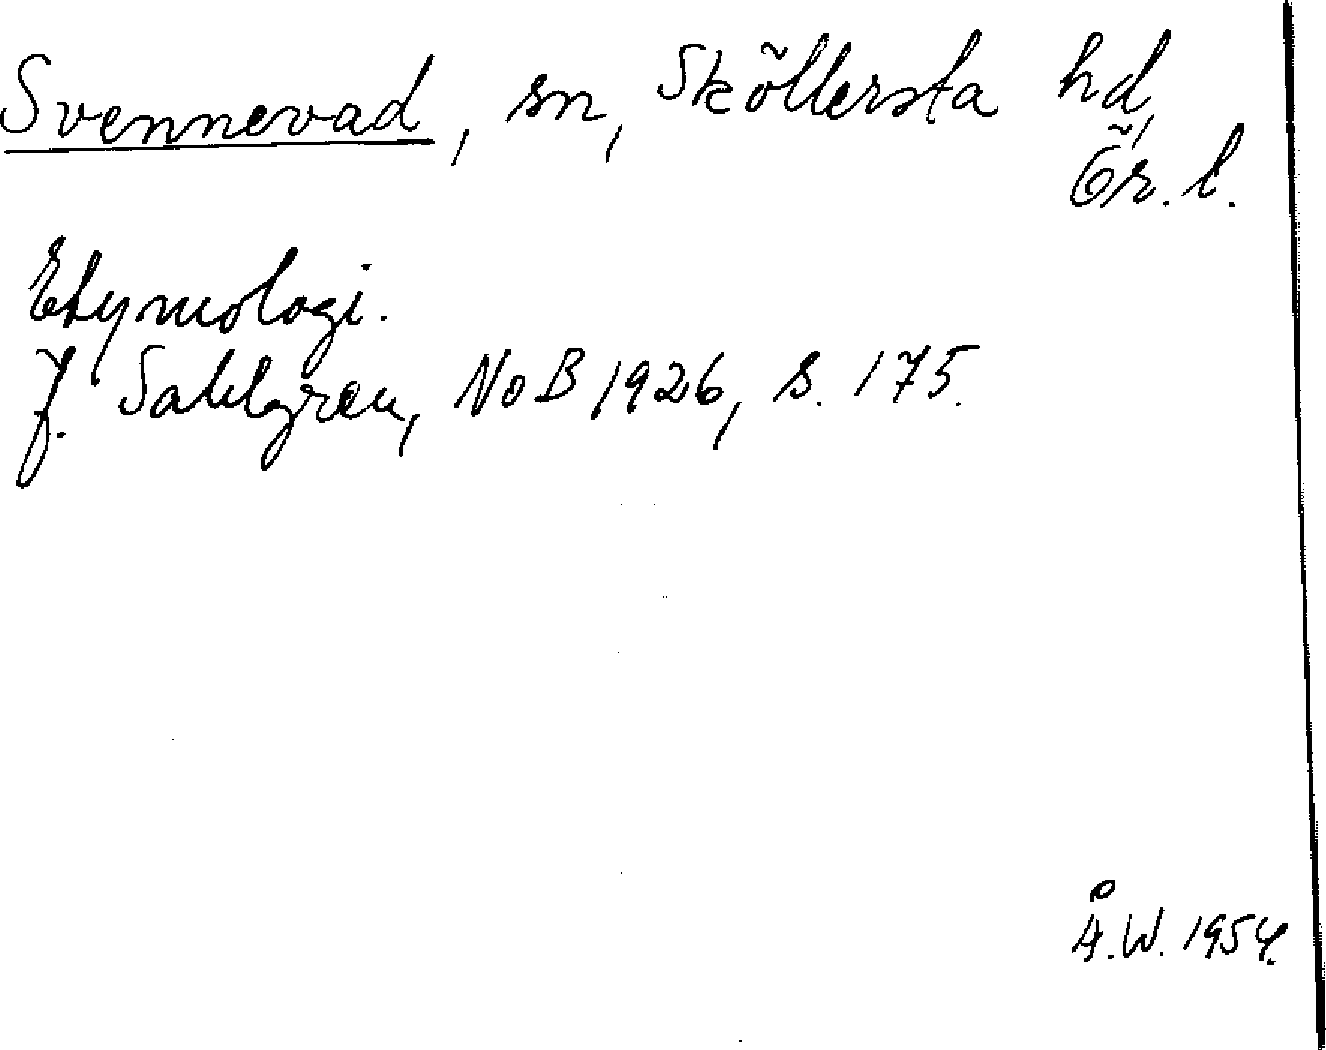 Svennevad, sn, Sköllersta hd,
Ör. l.
Etymologi.
J. Sahlgren, NoB 1926, s. 175.
Å.W. 1954.